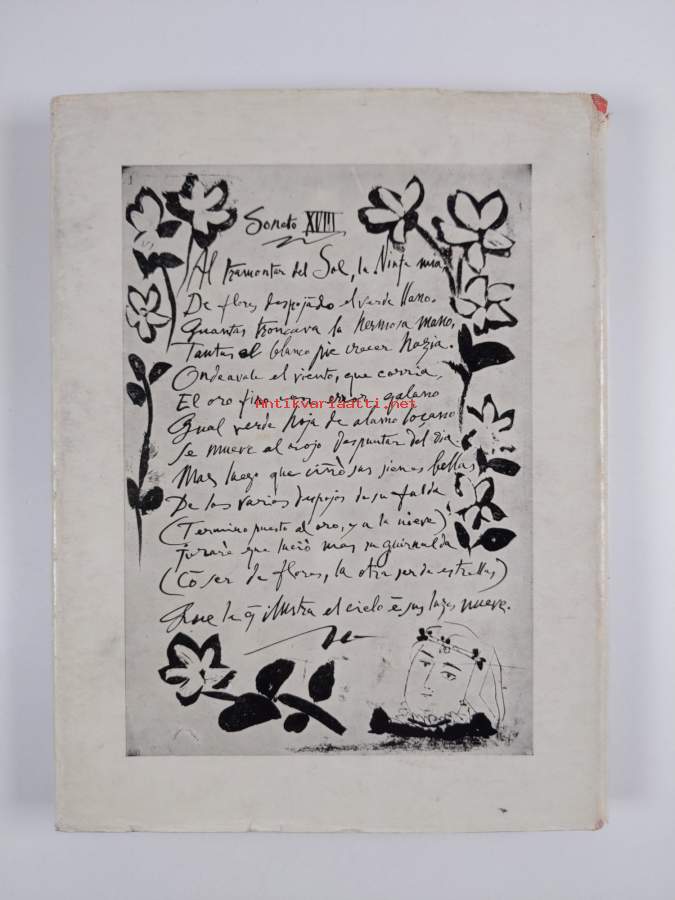 1
Soneto XVIII
Al tramontar del Sol, la Ninfa mia,
De flores despojãdo el verde llano.
Quantas troncava la hermosa mano,
Tantas el blanco pie crecer hazia.
Ondeavale el viento, que corria,
El oro fino con error galano
antikvariaatti.net
Qual verde hoja de alamo loçano
Se mueve al rojo despuntar del dia
Mas luego que ciñò sus sienes bellas
De los varios despojos de su falda
(Termino puesto al oro, y a la nieve)
Jurarè que luciò mas su guirnalda
(Cõ ser de flores, la otra ser de estrellas)
Que la q̃ ilustra el cielo ẽ sus luzes nueve.